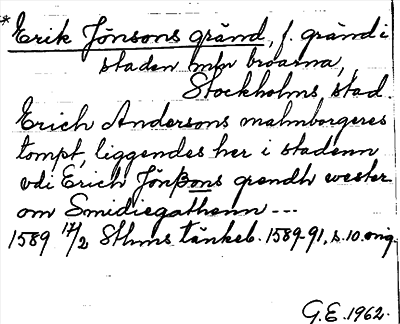 * Erik Jönsons gränd, f. gränd i
staden mln broarna,
Stockholms stad.
Erich Andersons malmborgeres
tompt, liggendes her i stadenn
vdi Erich Jönßons grendh wester
om Smidiegathenn ---
1589 17/2 Sthms tänkeb. 1589-91, s. 10. orig.
G.E. 1962.